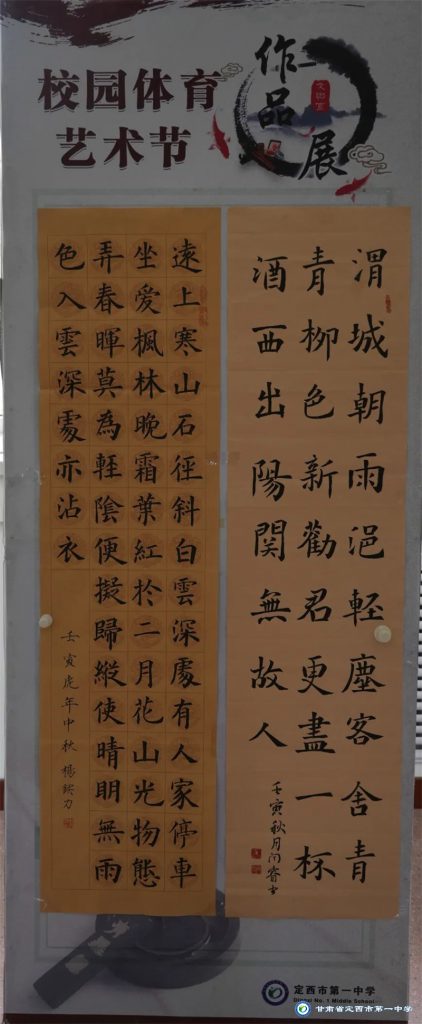 校园体育
艺术节
作品
展
渭城朝雨浥輕塵客舍青
青柳色新勸君更盡一杯
酒西出陽関無故人
壬寅秋月
遠上寒山石徑斜白雲深處有人家停車
坐愛楓林晚霜葉紅於二月花山光物態
弄春暉莫為輕陰便擬歸縱使晴明無雨
色入雲深處亦沾衣
壬寅虎年中秋 楊
定西市第一中学
Dingxi No. 1 Middle School
甘肃省定西市第一中学